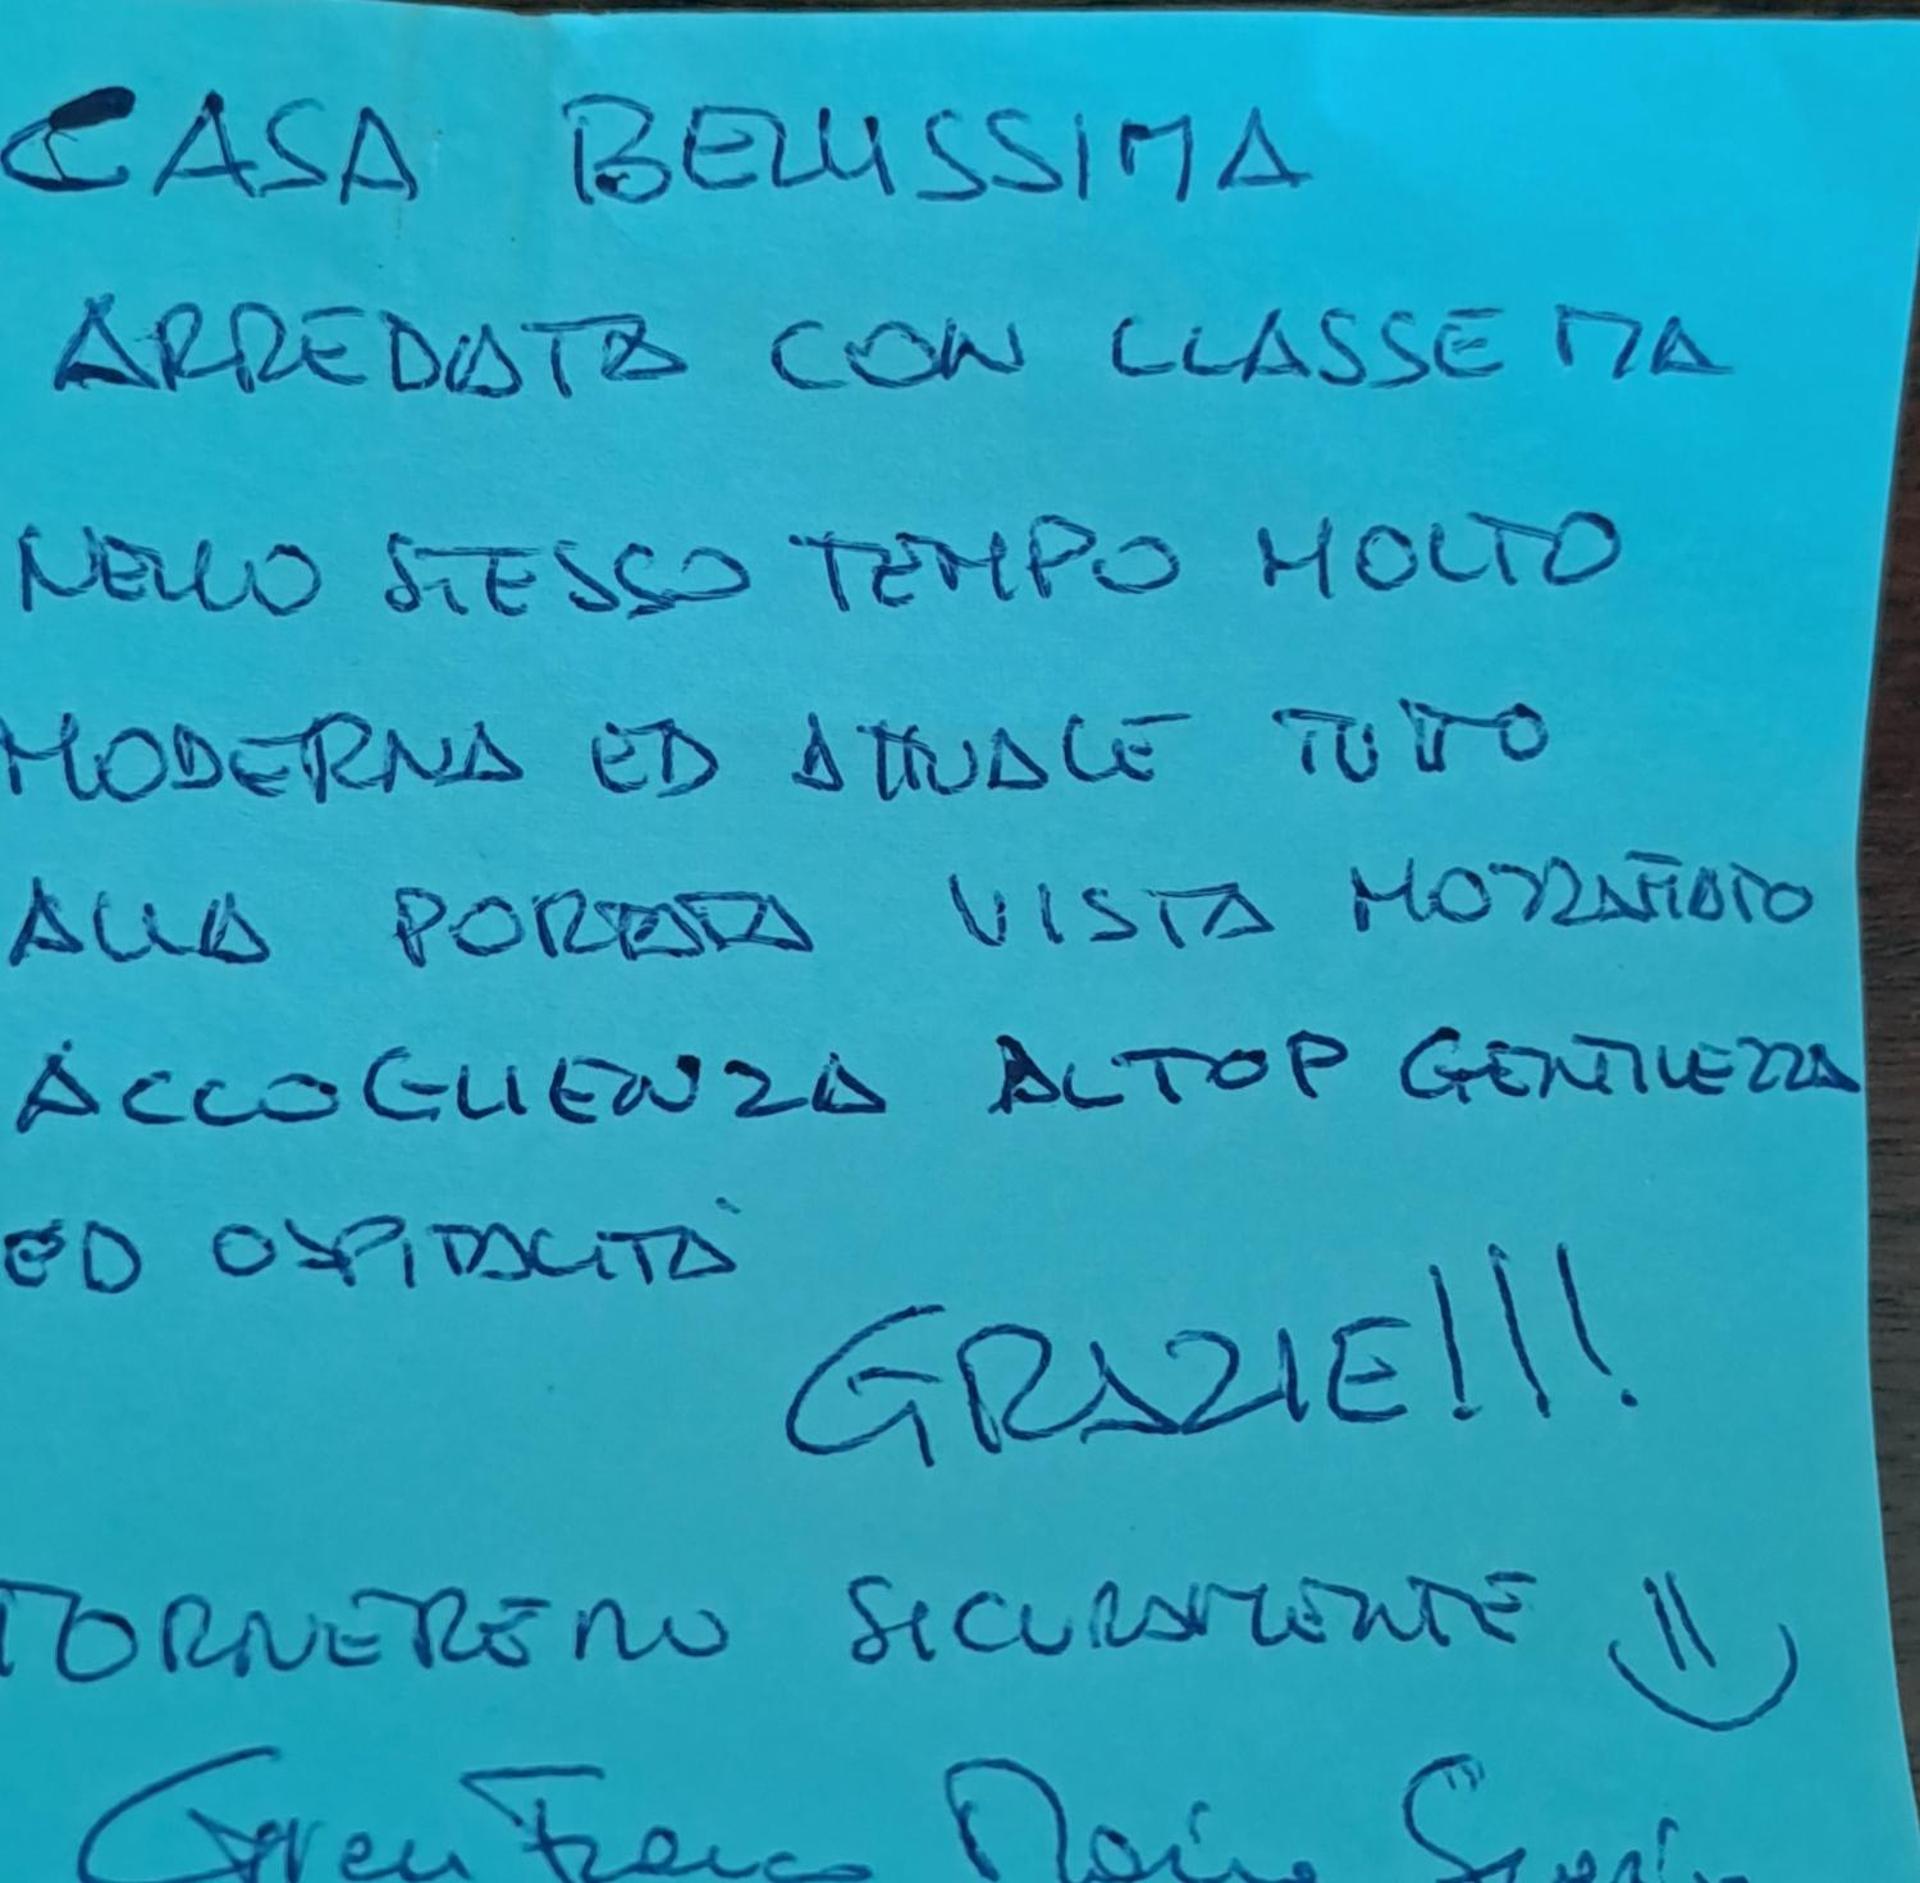 CASA BELLISSIMA
ARREDATA CON CLASSE MA
NELLO STESSO TEMPO MOLTO
MODERNA ED ATTUALE TUTTO
ALLA PORTATA VISTA MOZZAFIATO
ACCOGLIENZA AL TOP GENTILEZZA
ED OSPITALITÀ
GRAZIE!!!
TORNEREMO SICURAMENTE
Franco Maria